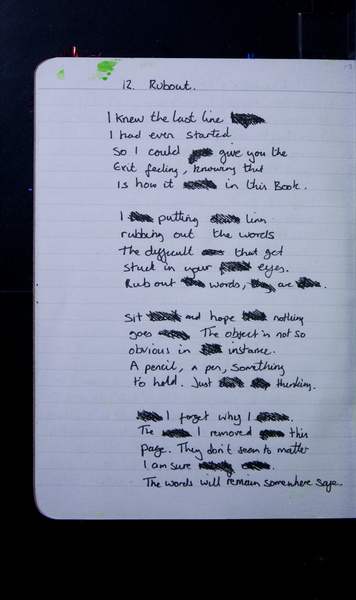 12. Rubout.
I knew the last line
I had ever started
So I could give you the
Exit feeling, knowing that
is how it in this Book.
I putting linn
rubbing out the words
The difficult that get
stuck in your eyes.
Rub out words, are
Sit and hope nothing
goes The object in not so
obvious in instance.
A pencil, a pen, something
to hold. Just thinking.
I forget why I
The I removed this
page. They don't seem to matter
I am sure
The words will remain somewhere safe.